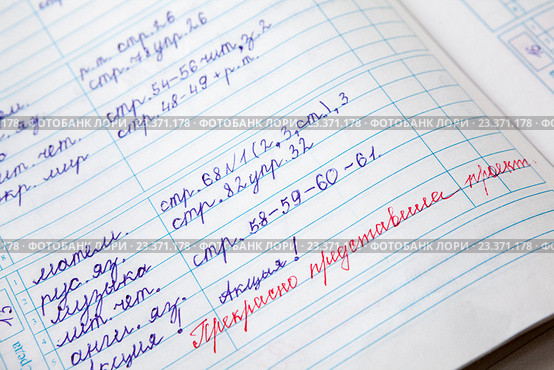 стр.
р.т. стр. 26
стр. 78 упр. 26
стр. 54-56 чит., з. 2
лит. чет. стр. 48-49 + р.т.
окр. мир
23,371,178 · ФОТОБАНК ЛОРИ · 23,371,178 · ФОТОБАНК ЛОРИ · 23,371,178
матем. стр. 68 N1(2,3,ст.),3
рус. яз. стр. 82 упр. 32
музыка
лит. чет. стр. 58-59-60-61.
англ. яз.
Акция! Акция!
Прекрасно представила проект.
23,371,178 · ФОТОБАНК ЛОРИ · 23,371,178 · ФОТОБАНК ЛОРИ · 23,371,178